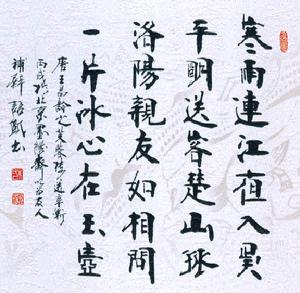 寒雨連江夜入吳
平明送客楚山孤
洛陽親友如相問
一片冰心在玉壺
唐王昌齡之芙蓉樓送辛漸
丙戌 北京 齋 友人
補壁 書